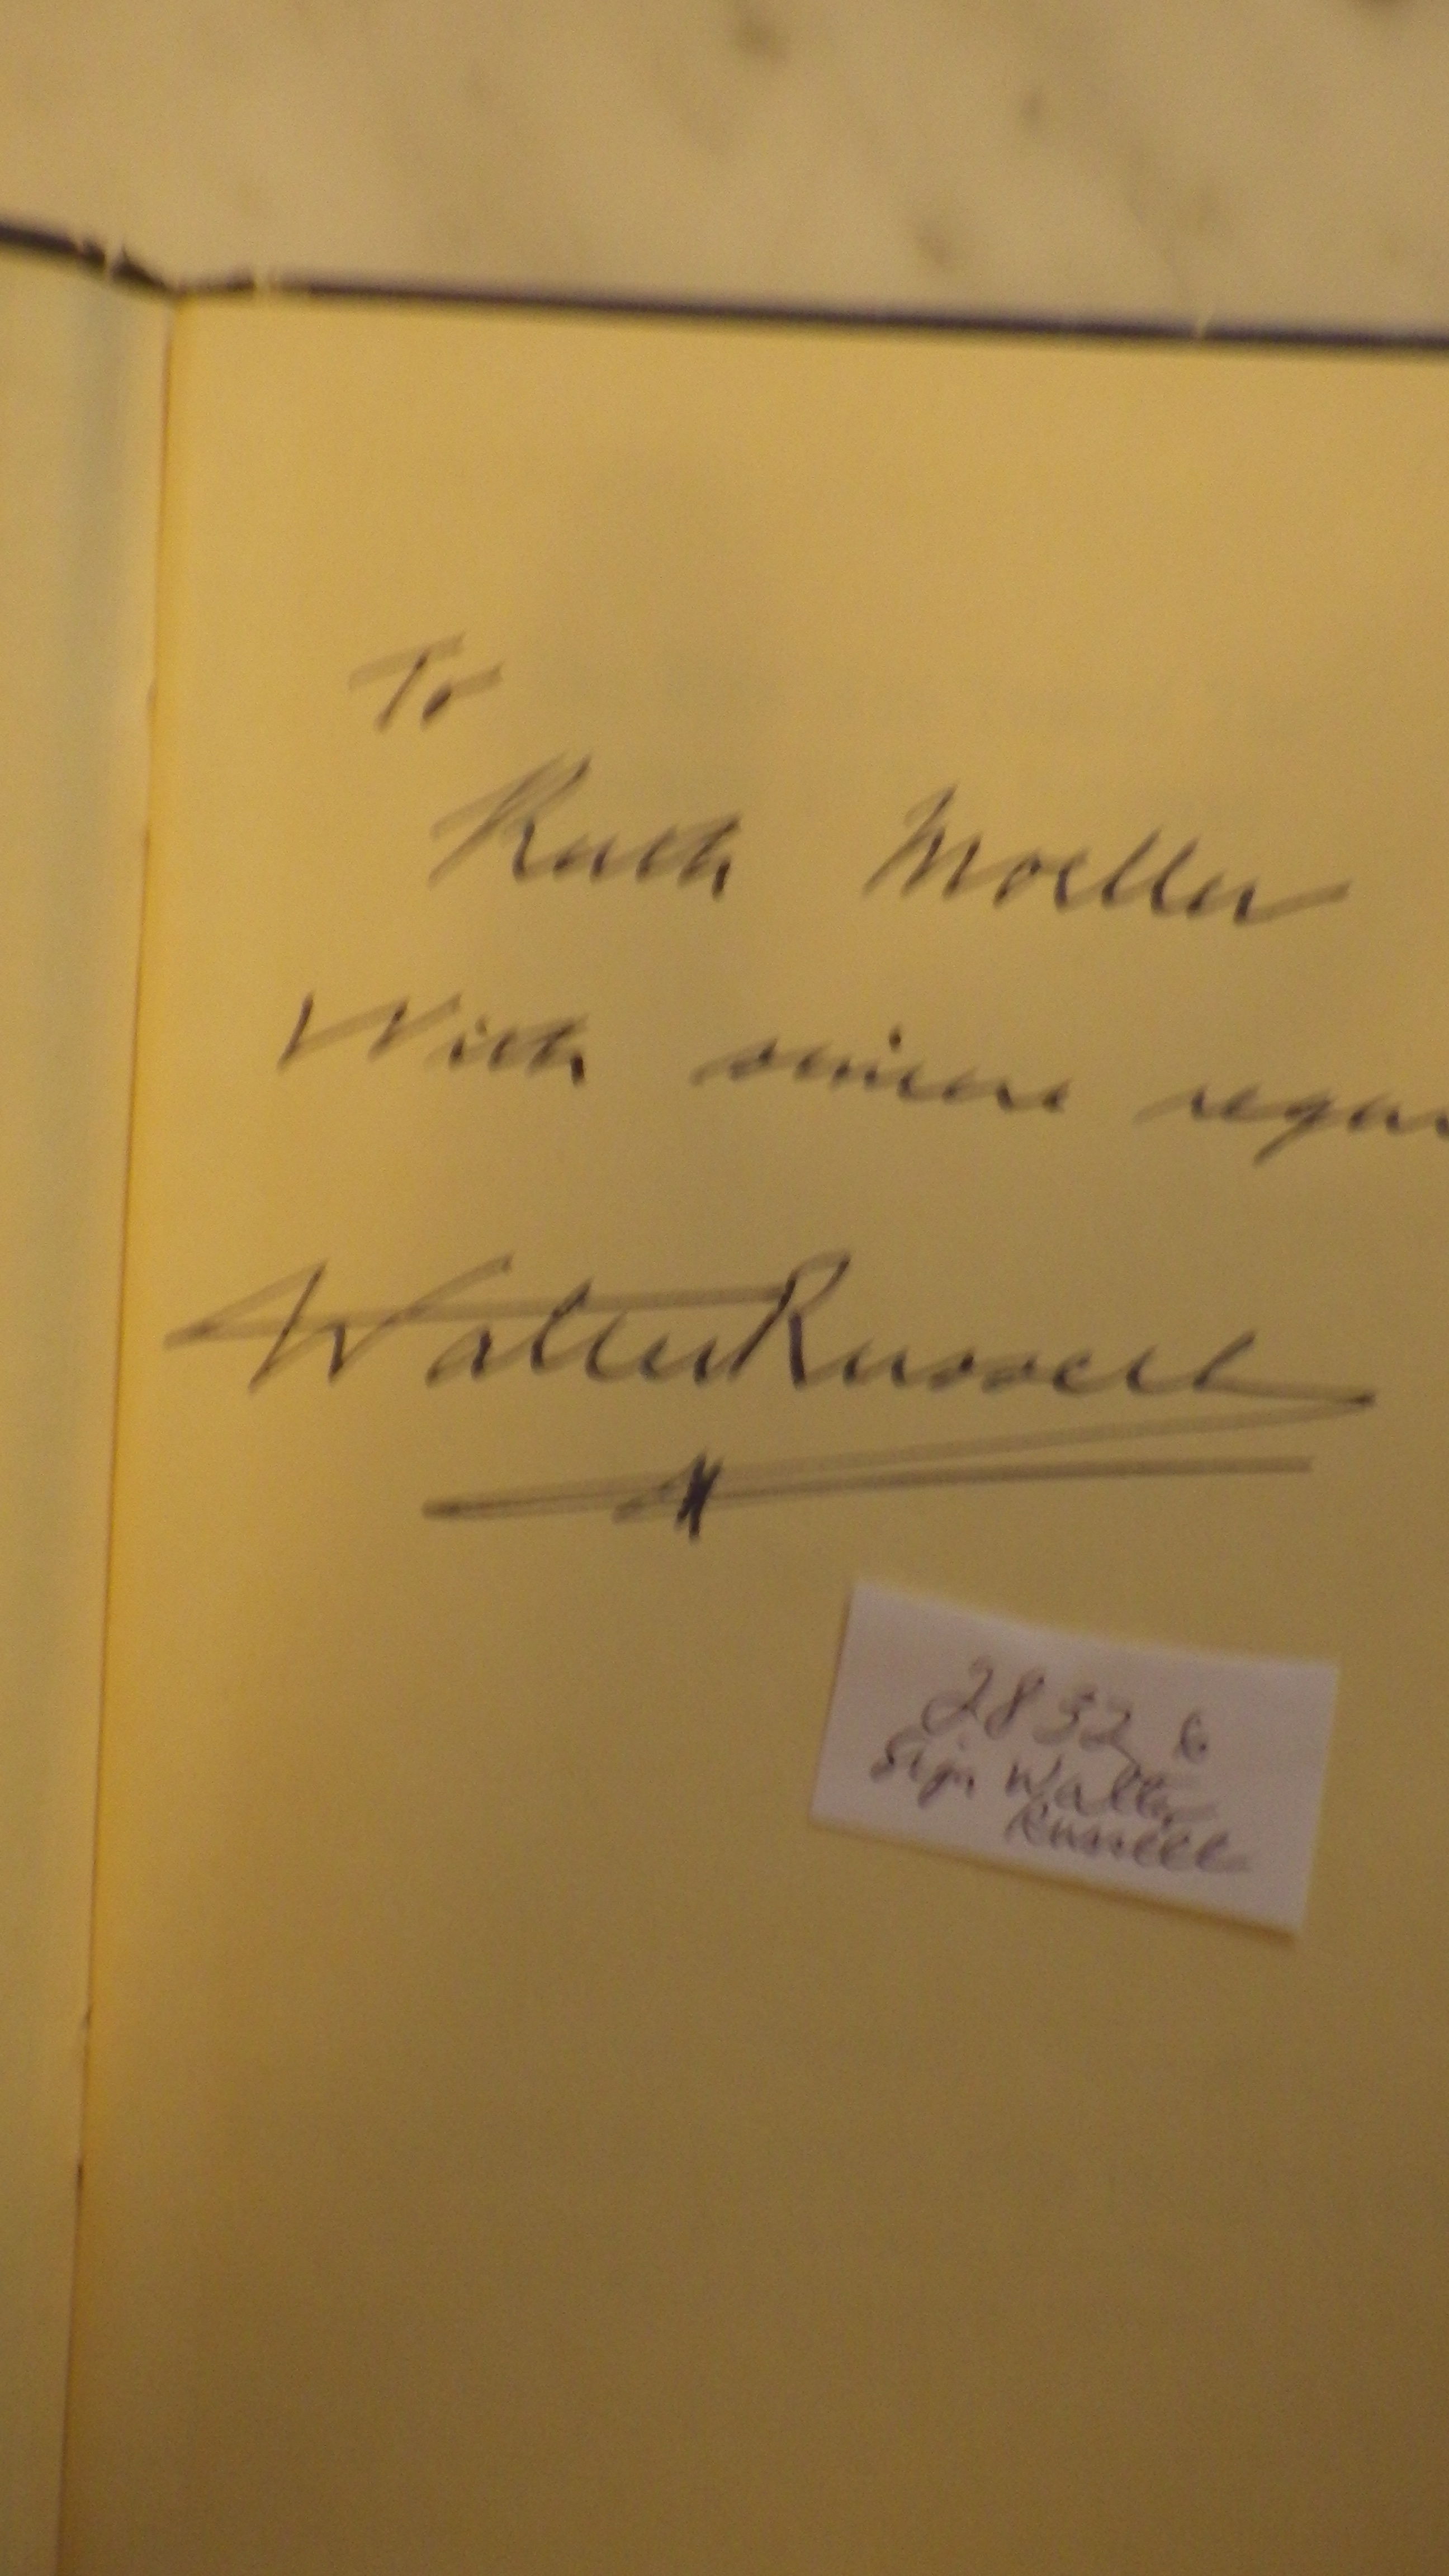 To
Ruth Moeller
With sincere regar
Walter Russell
2832 6
Sign Walter
Russell